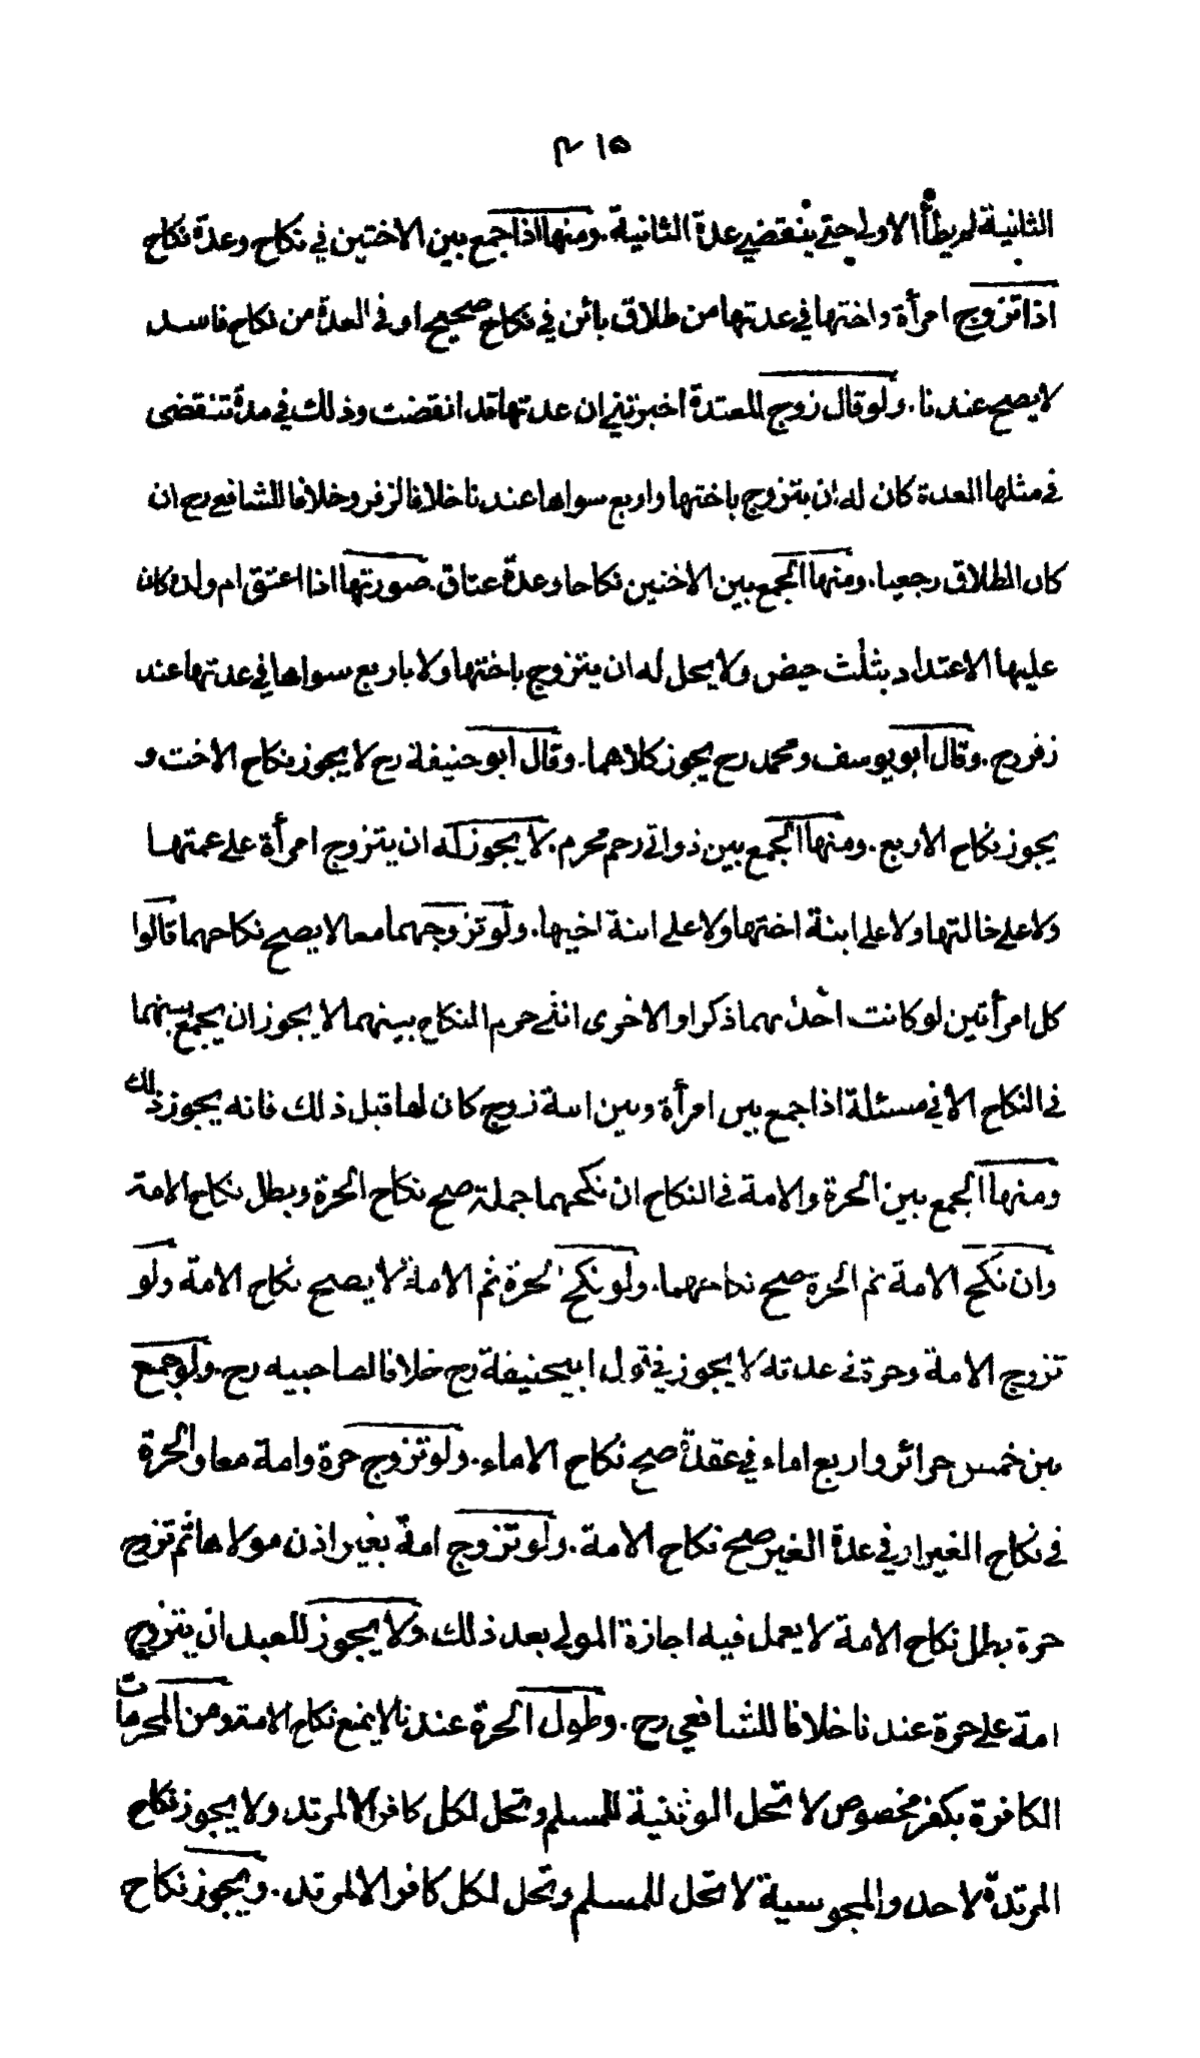 ٤١٥
الثانية لم يطأ الاولى حتى ينقضي عدة الثانية. ومنها اذا جمع بين الاختين في نكاح وعدة نكاح
اذا تزوج امرأة واختها في عدتها من طلاق بائن في نكاح صحيح او في العدة من نكاح فاسد
لا يصح عندنا. ولو قال زوج المعتدة اخبرتني ان عدتها قد انقضت وذلك في مدة تنقضى
في مثلها العدة كان له ان يتزوج باختها واربع سواها عندنا خلافا لزفر وخلافا للشافعي رح ان
كان الطلاق رجعيا. ومنها الجمع بين الاختين نكاحا وعدة عتاق. صورتها اذا اعتق ام ولده كان
عليها الاعتداد بثلث حيض ولا يحل له ان يتزوج باختها ولا باربع سواها في عدتها عند
زفر رح. وقال ابو يوسف ومحمد رح يجوز كلاهما. وقال ابو حنيفة رح لا يجوز نكاح الاخت و
يجوز نكاح الاربع. ومنها الجمع بين ذواتي رحم محرم. لا يجوز له ان يتزوج امرأة على عمتها
ولا على خالتها ولا على ابنة اختها ولا على ابنة اخيها. ولو تزوجهما معا لا يصح نكاحهما قالوا
كل امرأتين لو كانت احدٰىهما ذكرا والاخرى انثى حرم النكاح بينهما لا يجوز ان يجمع بينهما
في النكاح الا في مسئلة اذا جمع بين امرأة وبين ابنة زوج كان لها قبل ذلك فانه يجوز ذلك
ومنها الجمع بين الحرة والامة في النكاح ان نكحهما جملة صح نكاح الحرة وبطل نكاح الامة
وان نكح الامة ثم الحرة صح نكاحهما. ولو نكح الحرة ثم الامة لا يصح نكاح الامة ولو
تزوج الامة وحرة في عدته لا يجوز في قول ابيحنيفة رح خلافا لصاحبيه رح. ولو جمع
بين خمس حرائر واربع اماء في عقدة صح نكاح الاماء. ولو تزوج حرة وامة معا والحرة
في نكاح الغير او في عدة الغير صح نكاح الامة. ولو تزوج امة بغير اذن مولاها ثم تزوج
حرة بطل نكاح الامة لا يعمل فيه اجازة المولى بعد ذلك. ولا يجوز للعبد ان يتزوج
امة على حرة عندنا خلافا للشافعي رح. وطول الحرة عندنا لا يمنع نكاح الامة ومن المحرمات
الكافرة بكفر مخصوص لا تحل الوثنية للمسلم وتحل لكل كافر الا المرتد ولا يجوز نكاح
المرتدة لاحد والمجوسية لا تحل للمسلم وتحل لكل كافر الا المرتد. ويجوز نكاح